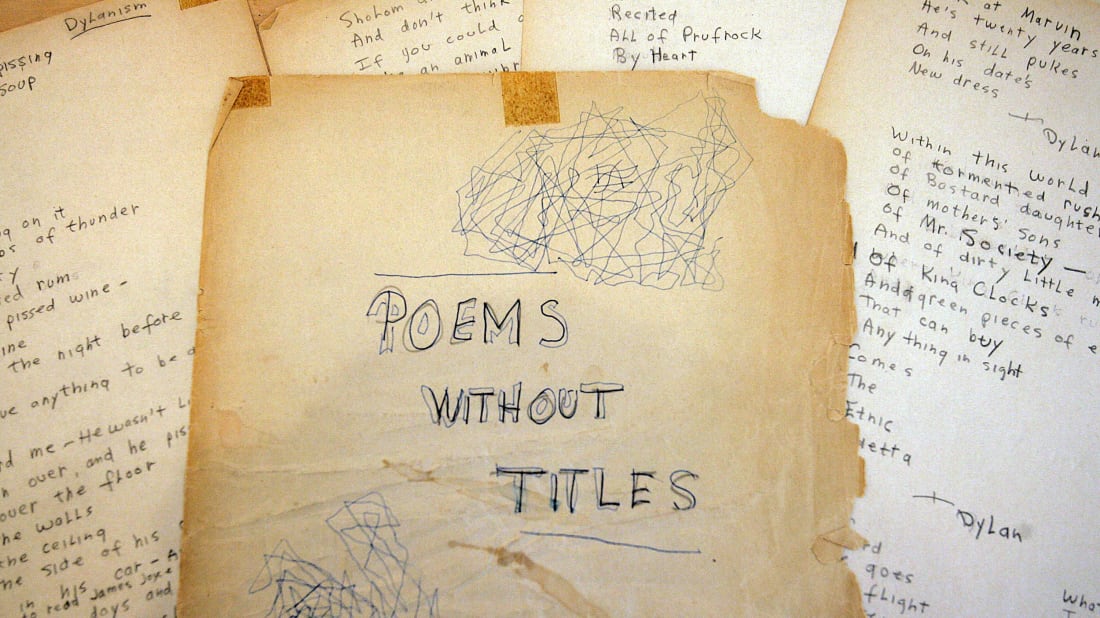 Dylanism
pissing
soup
on it
of thunder
rums
pissed wine -
the night before
anything to be
me - He wasn't
over, and he
over the floor
the walls
the ceiling
side of his
in his car -
to read James Joyce
days and
Shalom
And don't think
If you could
an animal
Recited
All of Prufrock
By Heart
POEMS
WITHOUT
TITLES
at Marvin
He's twenty years
And still pukes
On his date's
New dress
Dylan
Within this world
of tormented
of Bastard
Of mothers' sons
of Mr. Society -
And of dirty little
Of King Clocks
And green pieces of
That can buy
Any thing in sight
Comes
The
Ethic
Dylan
goes
flight